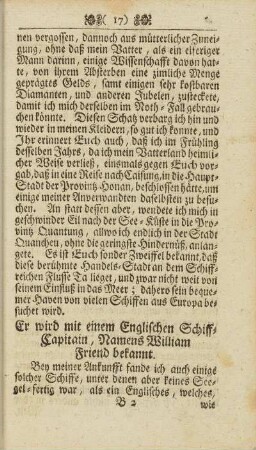 ( 17 )
nen vergossen, dannoch aus mütterlicher Zunei-
gung, ohne daß mein Vatter, als ein eiferiger
Mann darinn, einige Wissenschafft davon hat-
te, von ihrem Absterben eine zimliche Menge
geprägtes Gelds, samt einigen sehr kostbaren
Diamanten, und anderen Jubelen, zusteckete,
damit ich mich derselben im Noth-Fall gebrau-
chen könnte. Diesen Schatz verbarg ich hin und
wieder in meinen Kleidern, so gut ich konnte, und
Ihr erinnert Euch auch, daß ich im Frühling
desselben Jahrs, da ich mein Vatterland heimli-
cher Weise verließ, einsmals gegen Euch vor-
gab, daß in eine Reise nach Caifung, in die Haupt-
Stadt der Provintz Honan, beschlossen hätte, um
einige meiner Anverwandten daselbsten zu besu-
chen. An statt dessen aber, wendete ich mich in
geschwinder Eil nach der See-Küste in die Pro-
vintz Quantung, allwo ich endlich in der Stadt
Quancheu, ohne die geringste Hindernüß, anlan-
gete. Es ist Euch sonder Zweiffel bekannt, daß
diese berühmte Handels-Stadt an dem Schiff-
reichen Flusse Ta lieget, und zwar nicht weit von
seinem Einfluß in das Meer; dahero sein beque-
mer Haven von vielen Schiffen aus Europa be-
suchet wird.
Er wird mit einem Englischen Schiff-
Capitain, Namens William
Friend bekannt.
Bey meiner Ankunfft fande ich auch einige
solcher Schiffe, unter denen aber keines See-
gel-fertig war, als ein Englisches, welches,
B 2 wie